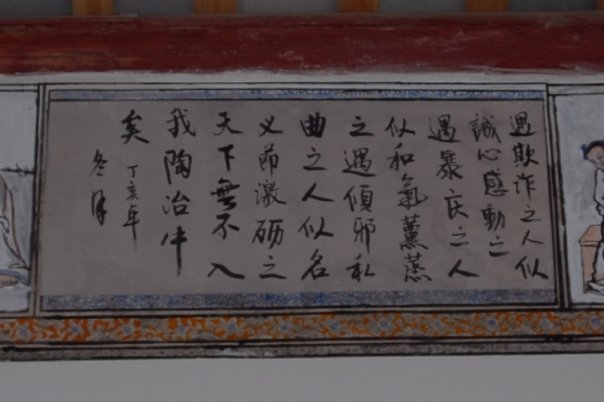 遇欺诈之人似
誠心感動之
遇暴戾之人
似和氣薰蒸
之遇傾邪私
曲之人似名
义莭激砺之
天下無不入
我陶冶中
矣
丁亥年
冬月